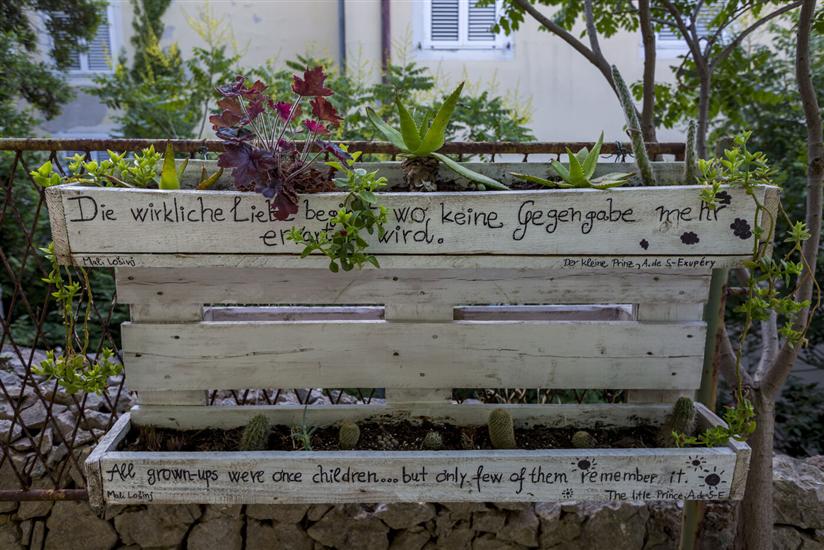 Die wirkliche Liebe beginnt wo keine Gegengabe mehr
erwartet wird.
Mali Lošinj Der kleine Prinz, A. de S-Exupéry
All grown-ups were once children...but only few of them remember it.
Mali Lošinj The little Prince, A. de S-E